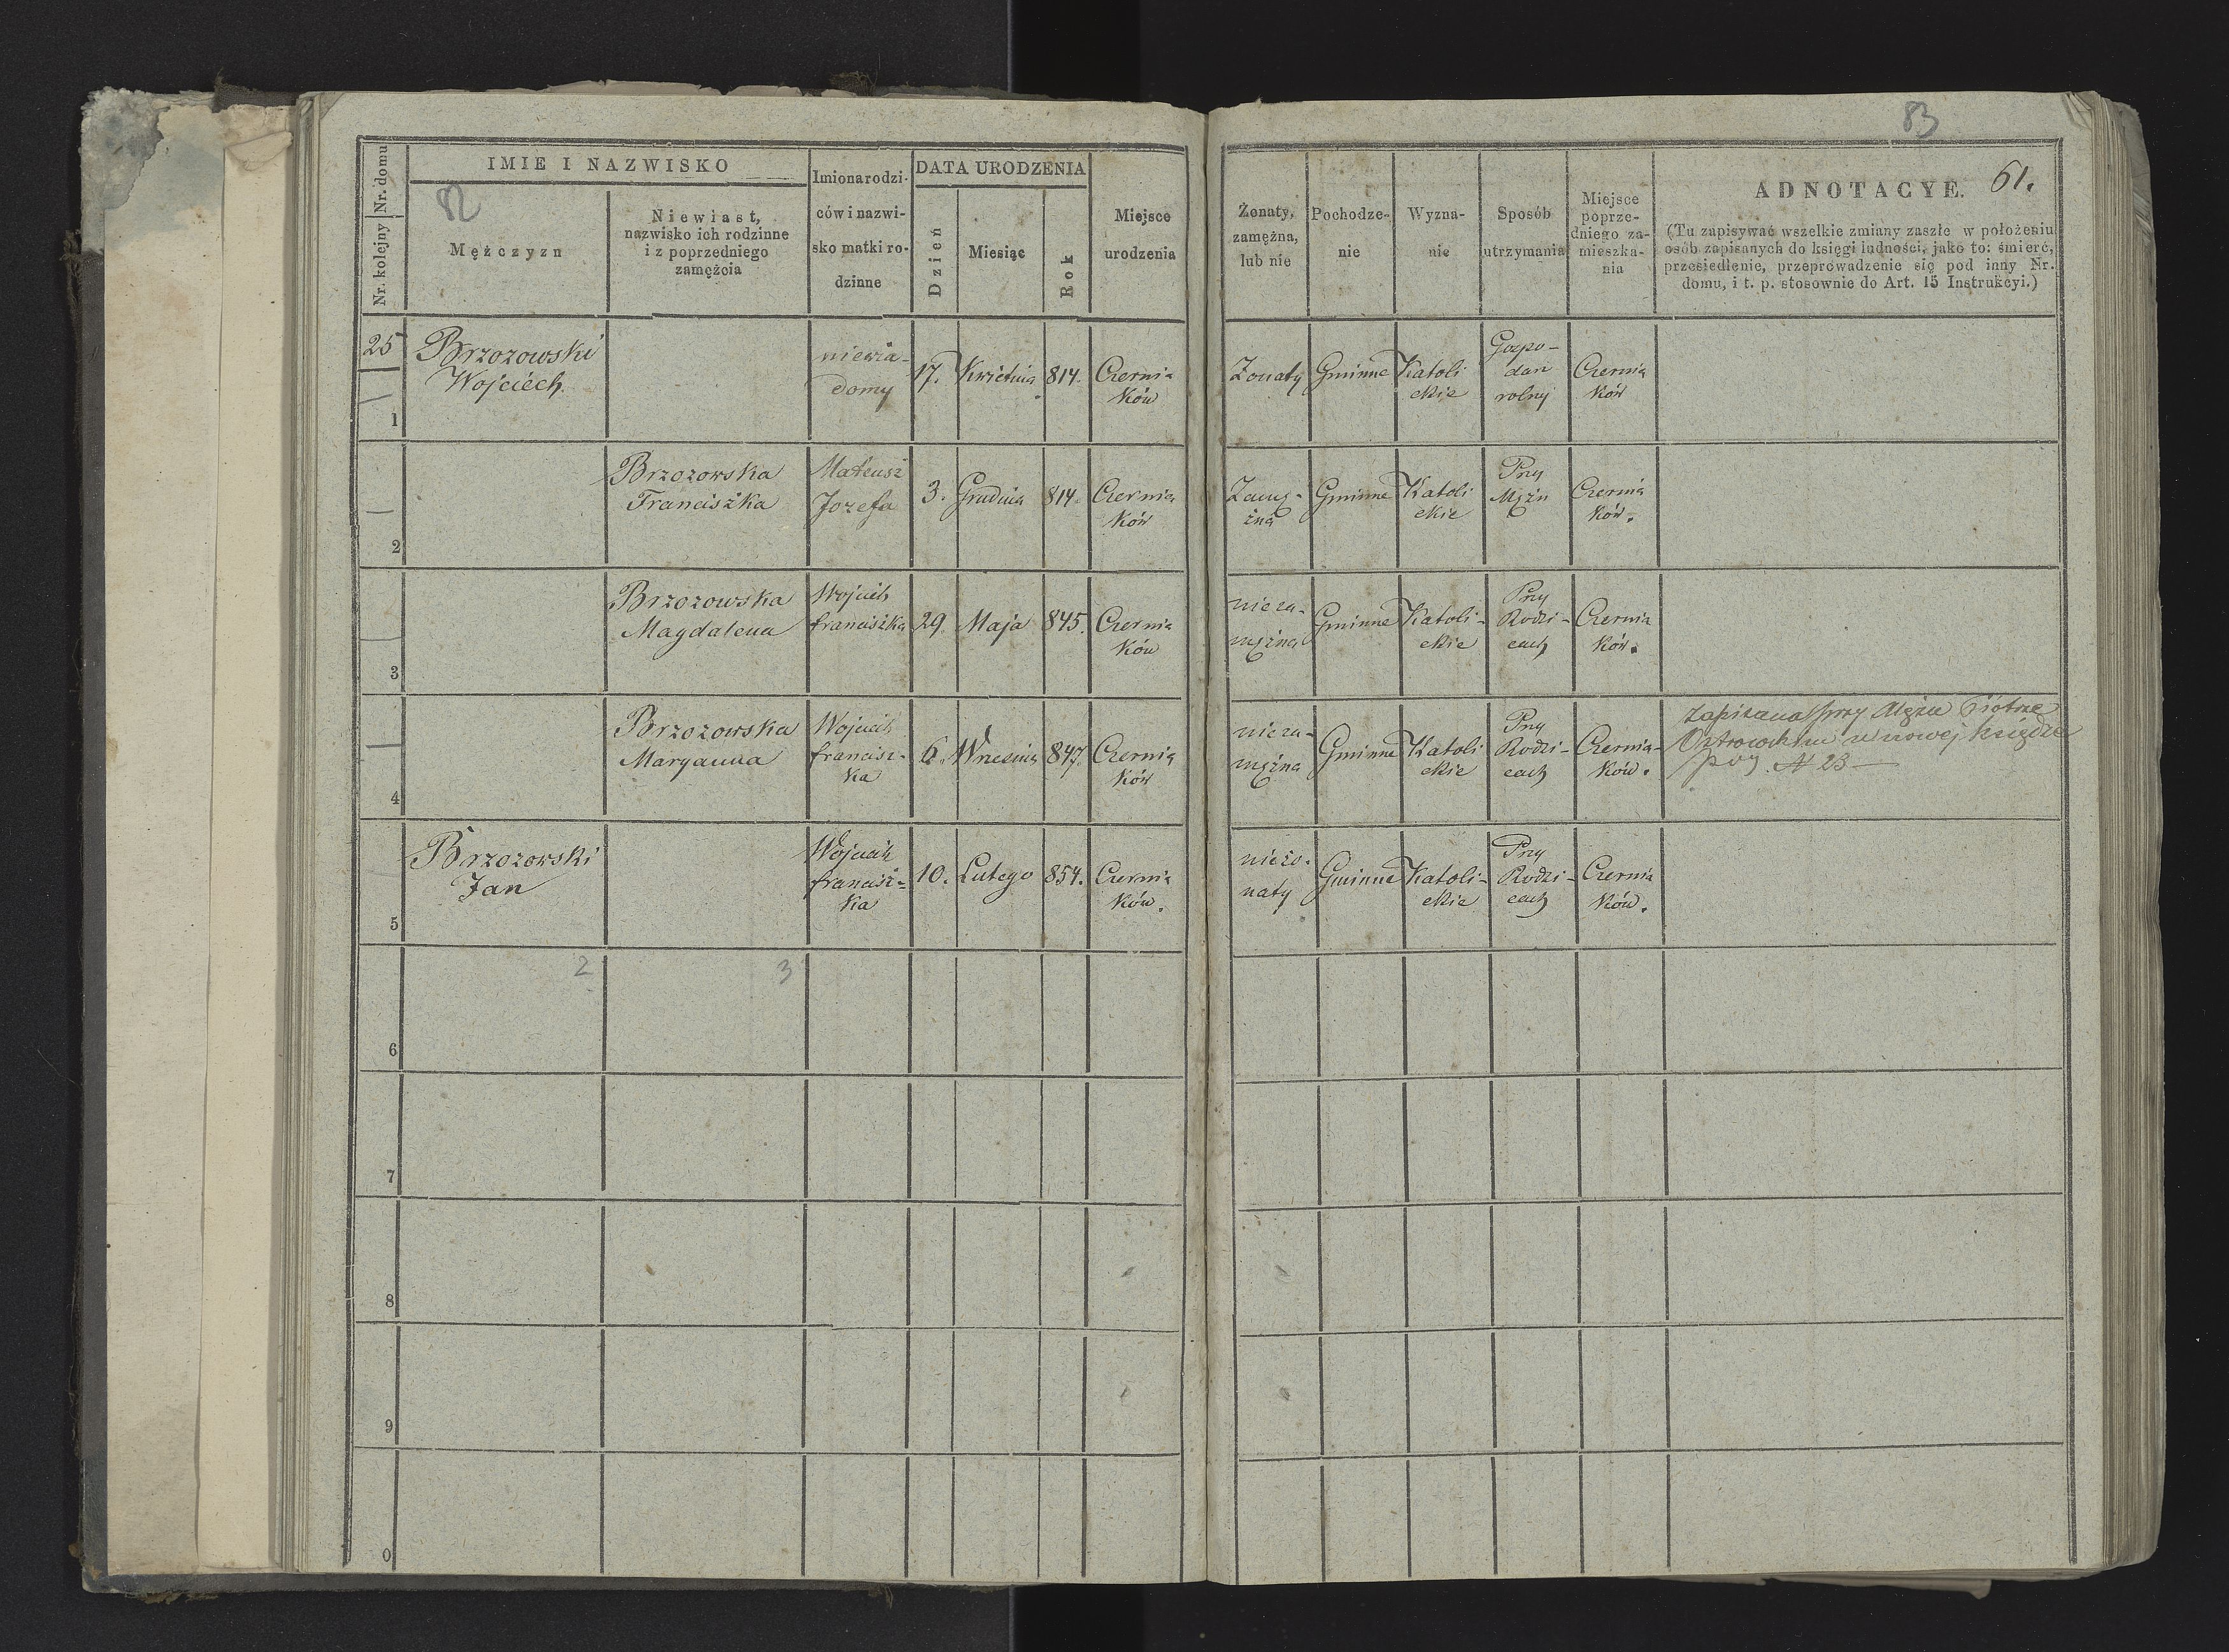 83
61.
82
Nr. kolejny Nr. domu
IMIE I NAZWISKO
Mężczyzn
Niewiast,
nazwisko ich rodzinne
i z poprzedniego
zamężcia
Imiona rodzi-
ców i nazwi-
sko matki ro-
dzinne
DATA URODZENIA
Dzień
Miesiąc
Rok
Miejsce
urodzenia
Żonaty,
zamężna,
lub nie
Pochodze-
nie
Wyzna-
nie
Sposób
utrzymania
Miejsce
poprze-
dniego za-
mieszka-
nia
ADNOTACYE.
(Tu zapisywać wszelkie zmiany zaszłe w położeniu
osób zapisanych do księgi ludności, jako to: śmierć,
przesiedlenie, przeprowadzenie się pod inny Nr.
domu, i t. p. stosownie do Art. 15 Instrukcyi.)
25
1
Brzozowski
Wojciech
niewia-
domy
17.
Kwietnia
814.
Czernia
ków
Żonaty
Gminne
Katoli
ckie
Gospo-
darz
rolny
Czernia
ków
2
Brzozowska
Franciszka
Mateusz
Jozefa
3.
Grudnia
814.
Czernia
ków
Zamę-
żna
Gminne
Katoli
ckie
Przy
Mężu
Czernia
ków.
3
Brzozowska
Magdalena
Wojciech
franciszka
29.
Maja
845.
Czernia
ków
nieza-
mężna
Gminne
Katoli-
ckie
Przy
Rodzi-
cach
Czernia
ków.
4
Brzozowska
Maryanna
Wojciech
francisz-
ka
6.
Wrzesnia
847.
Czernia
ków
nieza-
mężna
Gminne
Katoli
ckie
Przy
Rodzi-
cach
Czernia-
ków.
Zapisana przy Mężu Piotrze
w nowej księdze
pog. N 23
5
Brzozowski
Jan
Wojciech
francisz=
ka
10.
Lutego
854.
Czernia
ków.
nieżo-
naty
Gminne
Katoli-
ckie
Przy
Rodzi-
cach
Czernia
ków.
6
2
3
7
8
9
0